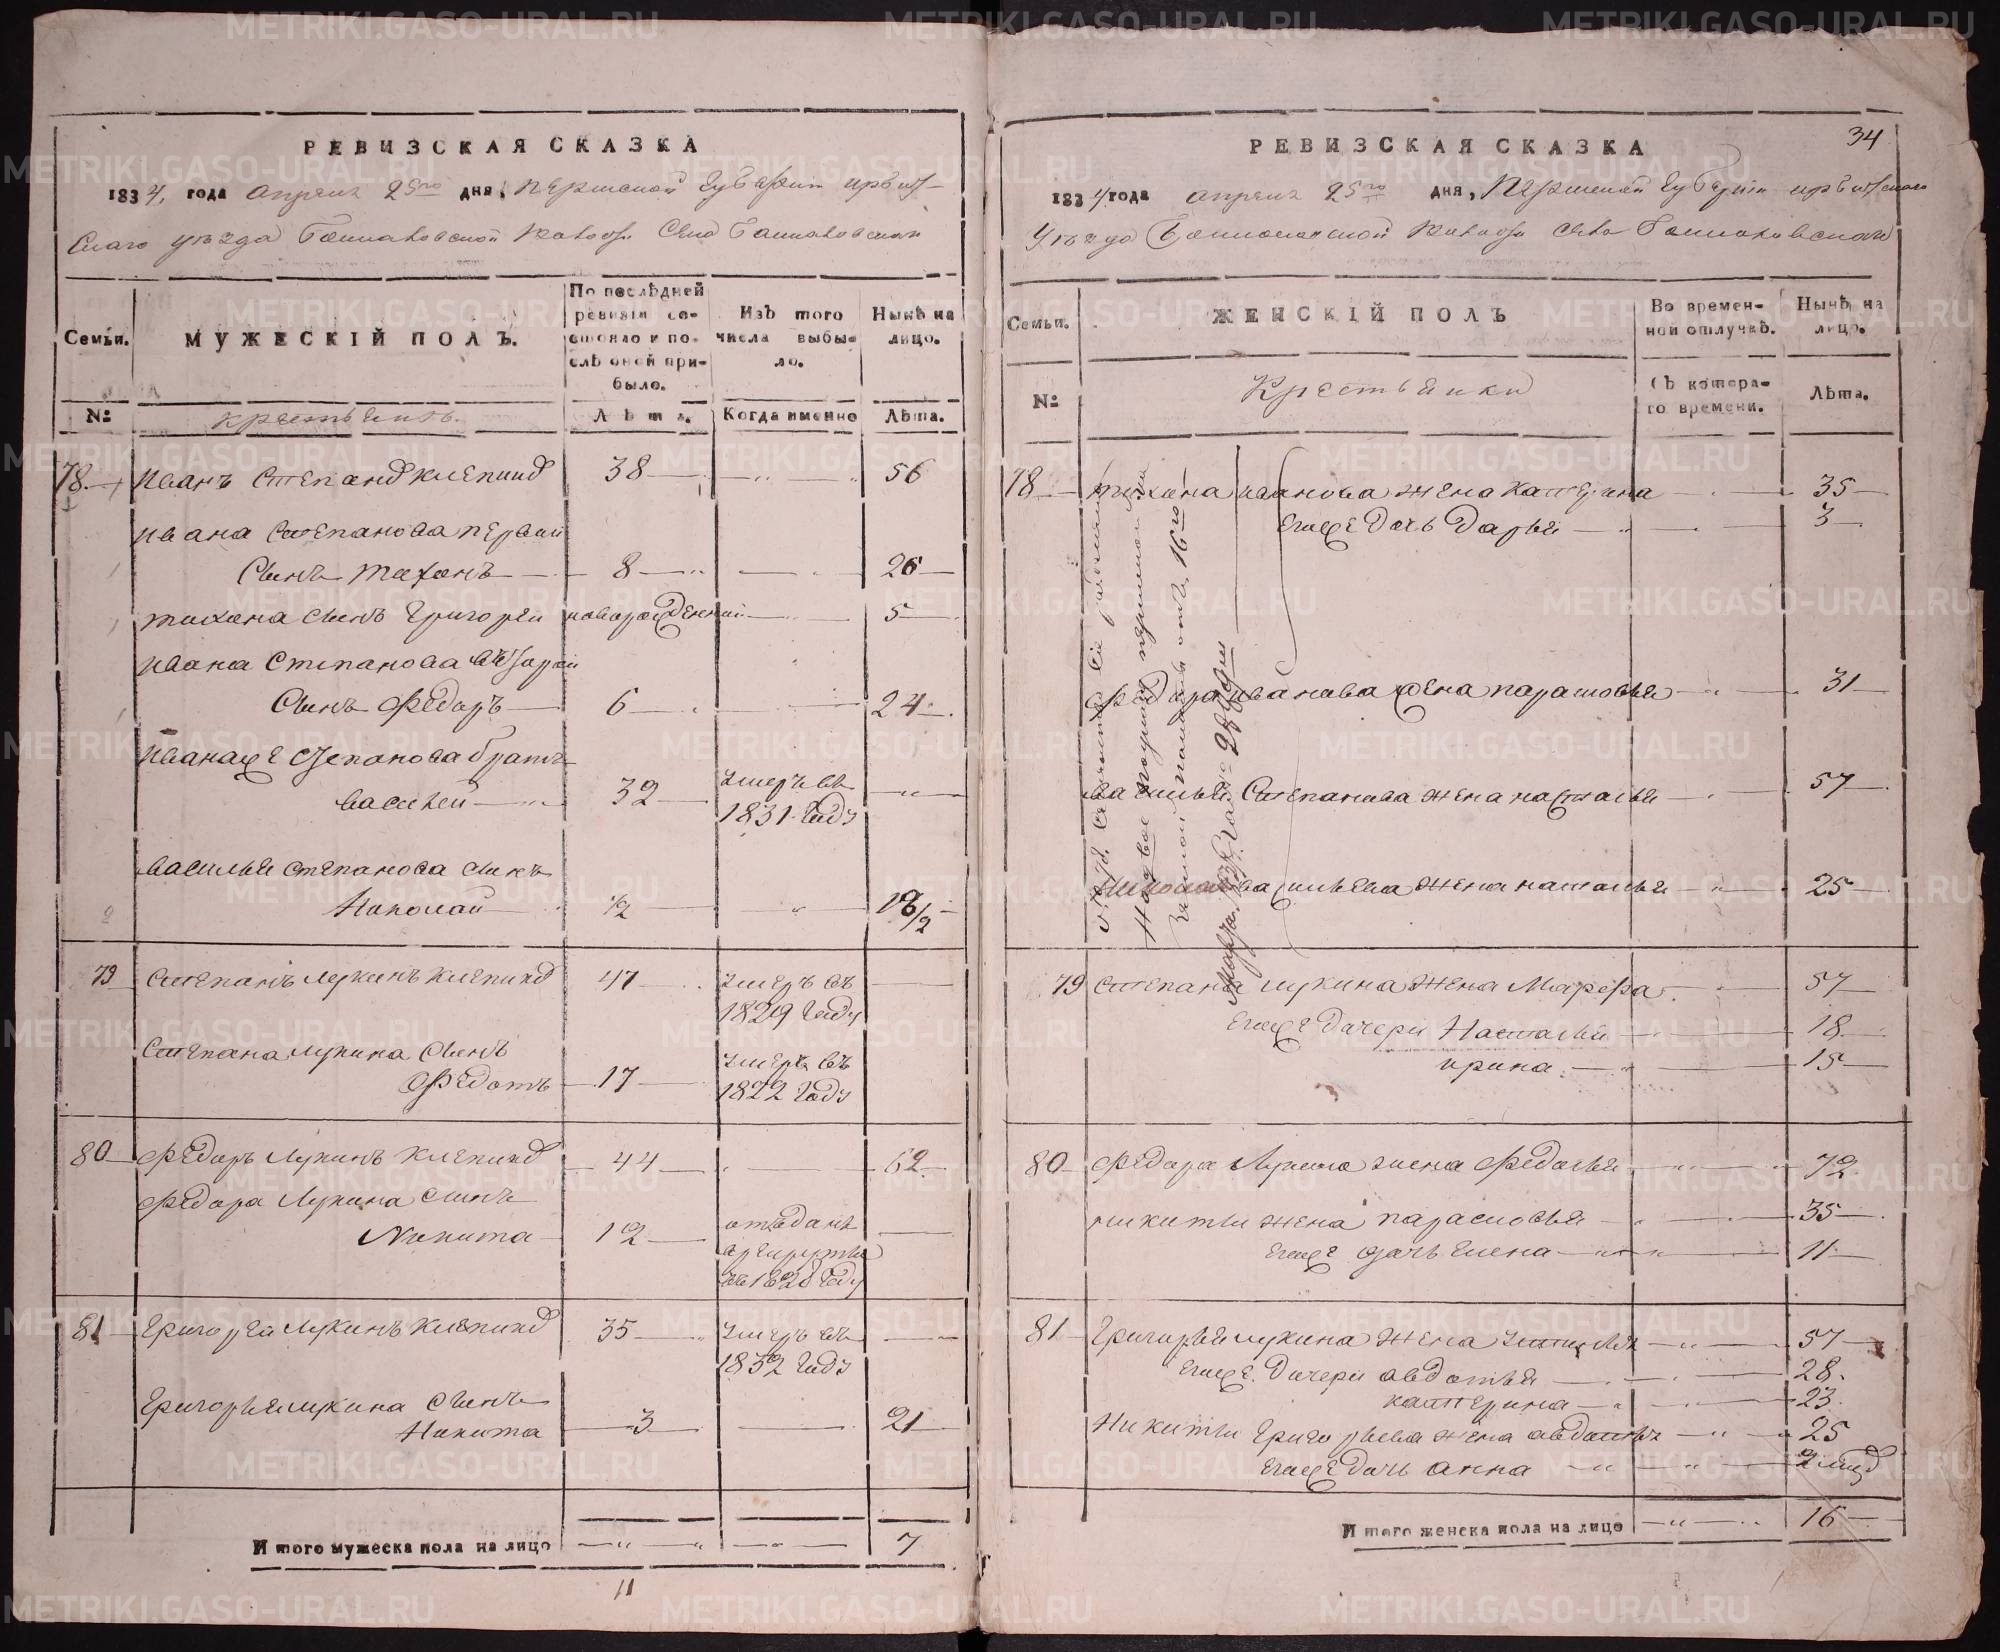 РЕВИЗСКАЯ СКАЗКА
1834, года апреля 25го дня, Пермской Губернии Ирбит-
скаго уезда волости села
Семьи.
МУЖЕСКІЙ ПОЛЪ.
По послѣдней ревизіи состояло и послѣ оной прибыло.
Изъ того числа выбыло.
Нынѣ на лицо.
№
крестьянъ.
Лѣта.
Когда именно
Лѣта.
78 Иванъ Степановъ Клепининъ 38 56
Ивана Степанова первый
Сынъ Тихонъ 8 26
Тихона сынъ Григорей новорожденный 5
Ивана Степанова второй
Сынъ Федоръ 6 24
Иванаже Степанова братъ
Василей 32 умеръ въ 1831 году
Василья Степанова сынъ
Николай 1/2 18 1/2
79 Степанъ Лукинъ Клепининъ 47 умеръ въ 1829 году
Степана Лукина Сынъ
Федотъ 17 умеръ въ 1822 году
80 Федоръ Лукинъ Клепининъ 44 62
Федора Лукина сынъ
Никита 12 отъданъ в рекруты въ 1828 году
81 Григорей Лукинъ Клепининъ 35 умеръ въ 1832 году
Григорья Лукина Сынъ
Никита 3 21
Итого мужеска пола на лицо 7
11
34
РЕВИЗСКАЯ СКАЗКА
1834 года апреля 25го дня, Пермской Губернии Ирбитскаго
Уезда волости села
Семьи.
ЖЕНСКІЙ ПОЛЪ
Во временной отлучкѣ.
Нынѣ на лицо.
№
Крестьянки
Съ котораго времени.
Лѣта.
78 Тихона Иванова жена Катерина 35
Егоже дочь Дарья 3
Федора Иванова жена Парасковья 31
Василья Степанова жена Наталья 57
Николая Васильева жена Наталья 25
79 Степана Лукина жена Марфа 57
Егоже дочери Наталья 18
Ирина 15
80 Федора Лукина жена Федосья 72
Никиты жена Парасковья 35
Егоже дочь Елена 11
81 Григорья Лукина жена Устинья 57
Егоже дочери Авдотья 28
Катерина 23
Никиты Григорьева жена Авдотья 25
Егоже дочь Анна 2 мец
Итого женска пола на лицо 16
METRIKI.GASO-URAL.RU